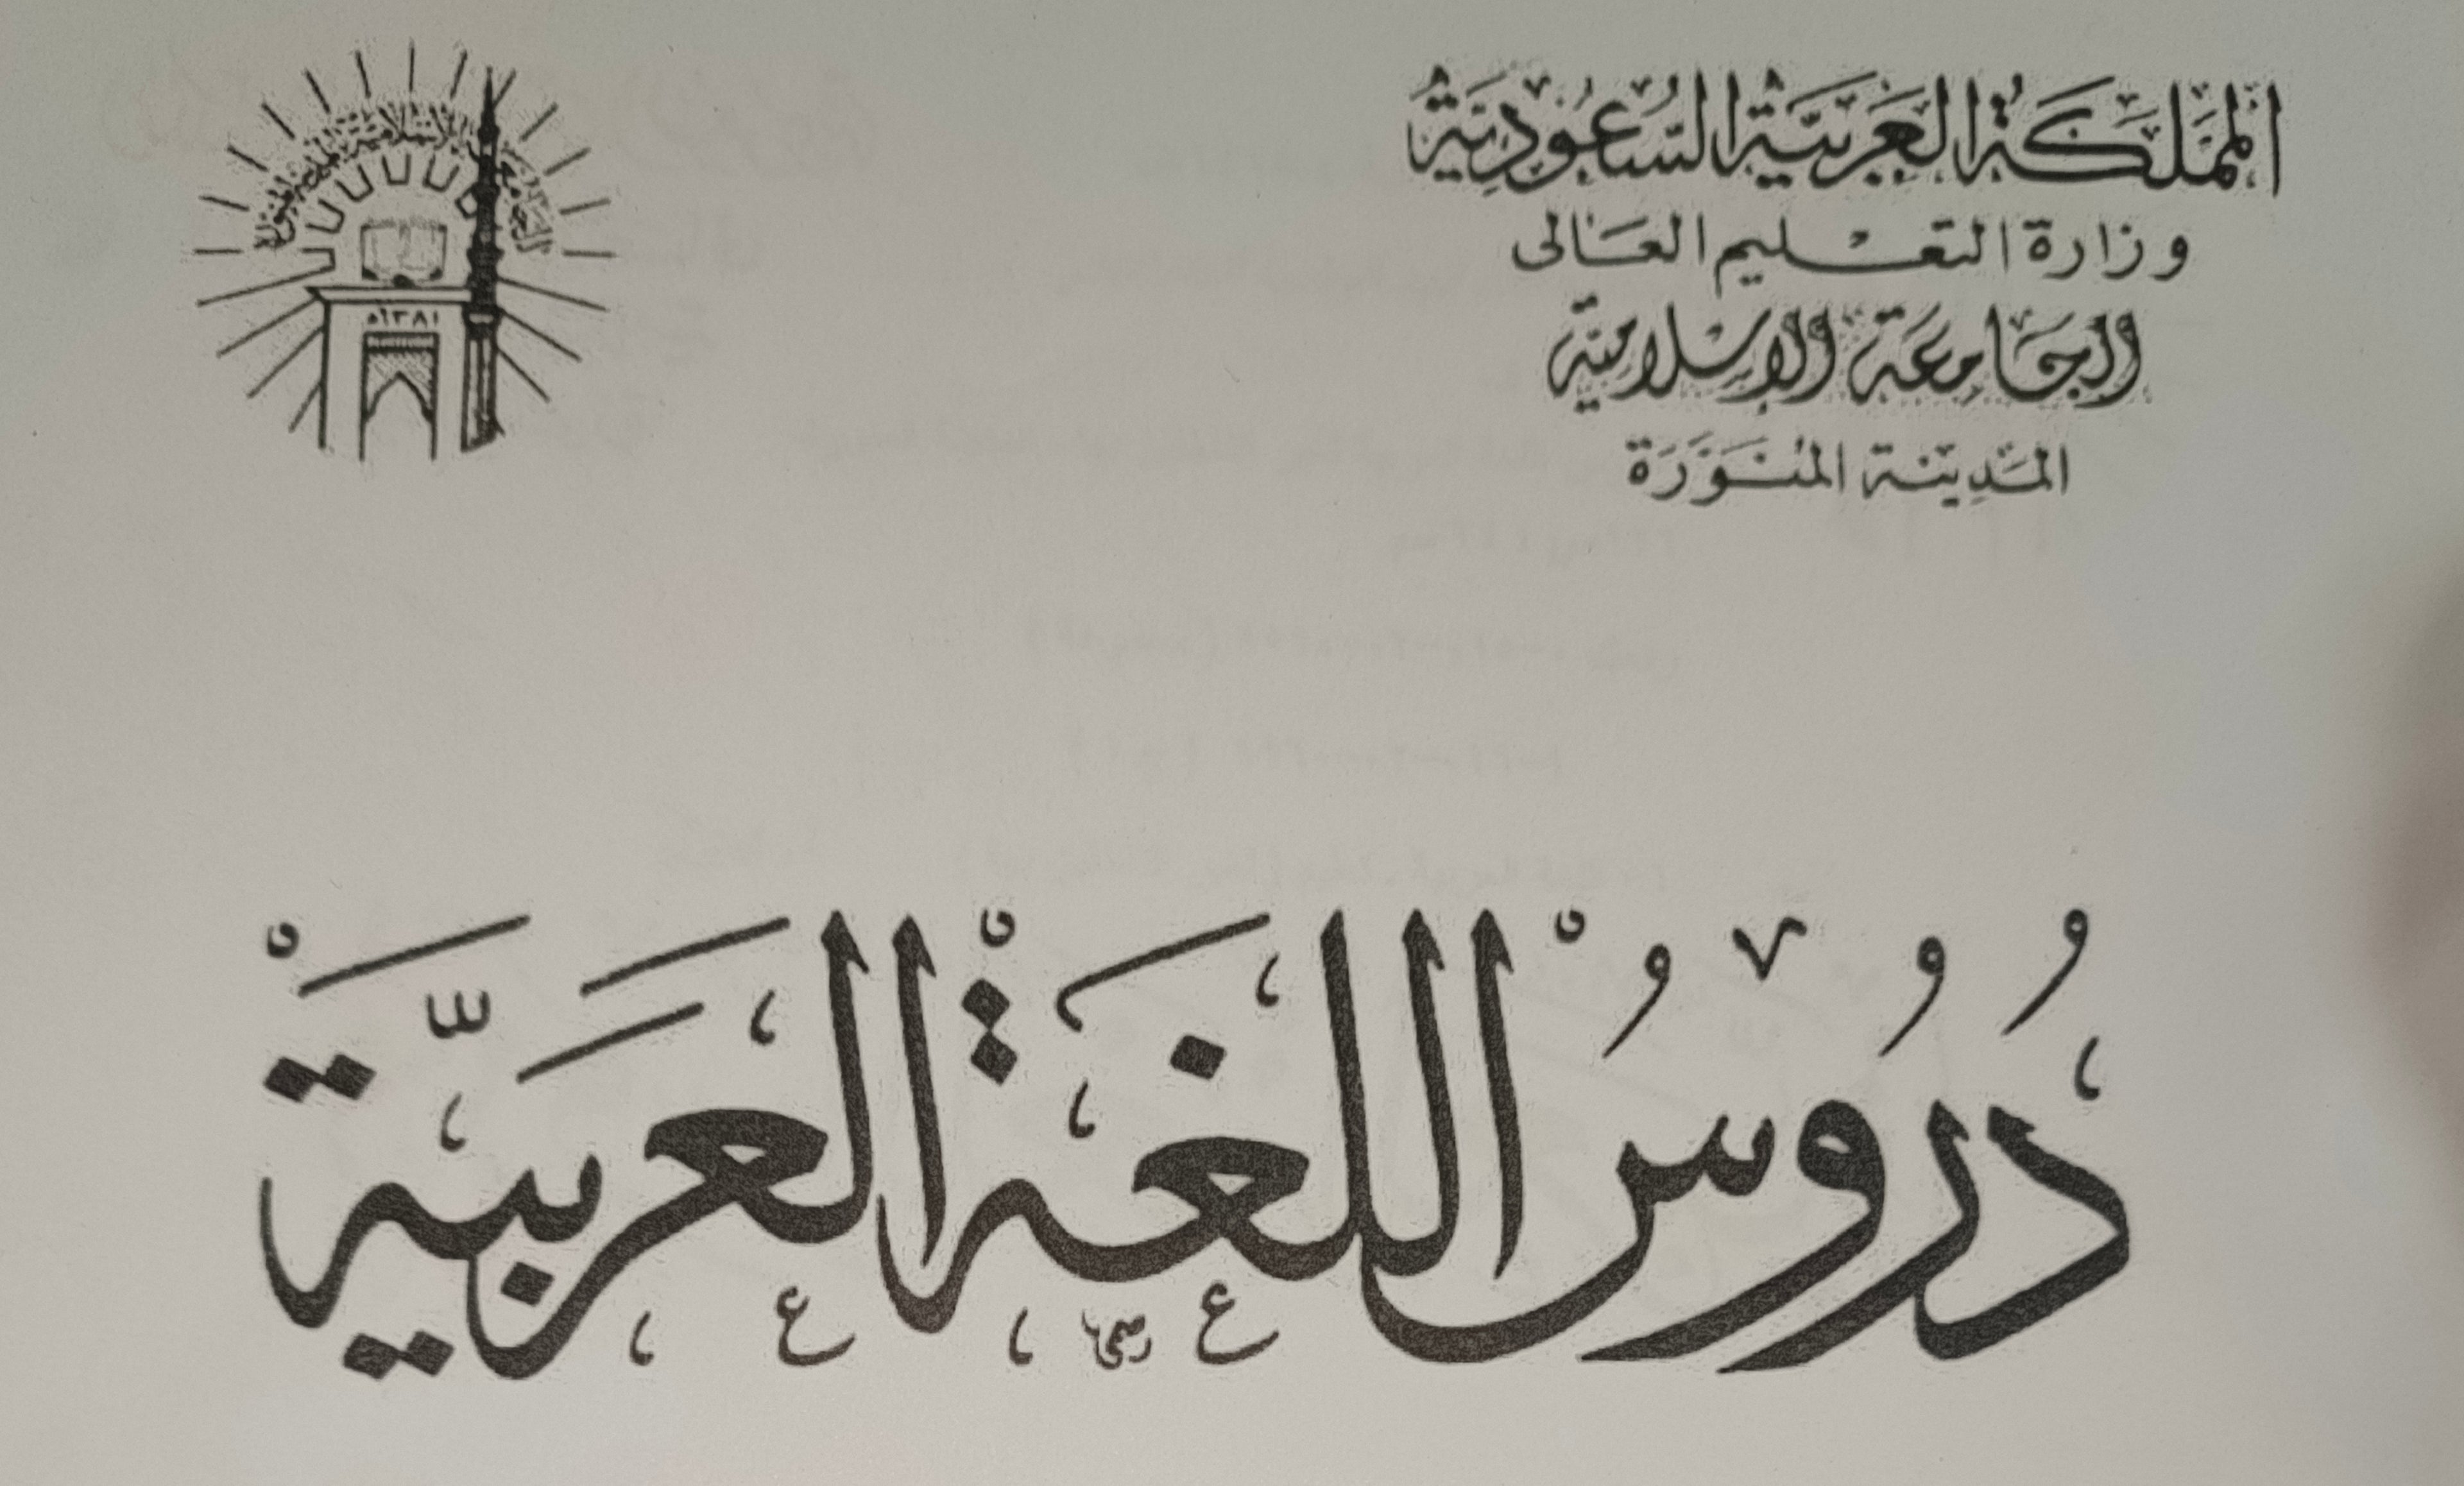 المملكة العربية السعودية
وزارة التعليم العالى
الجامعة الإسلامية
المدينة المنورة
١٣٨١هـ
دُرُوسُ اللغَةِ العَرَبيَّة